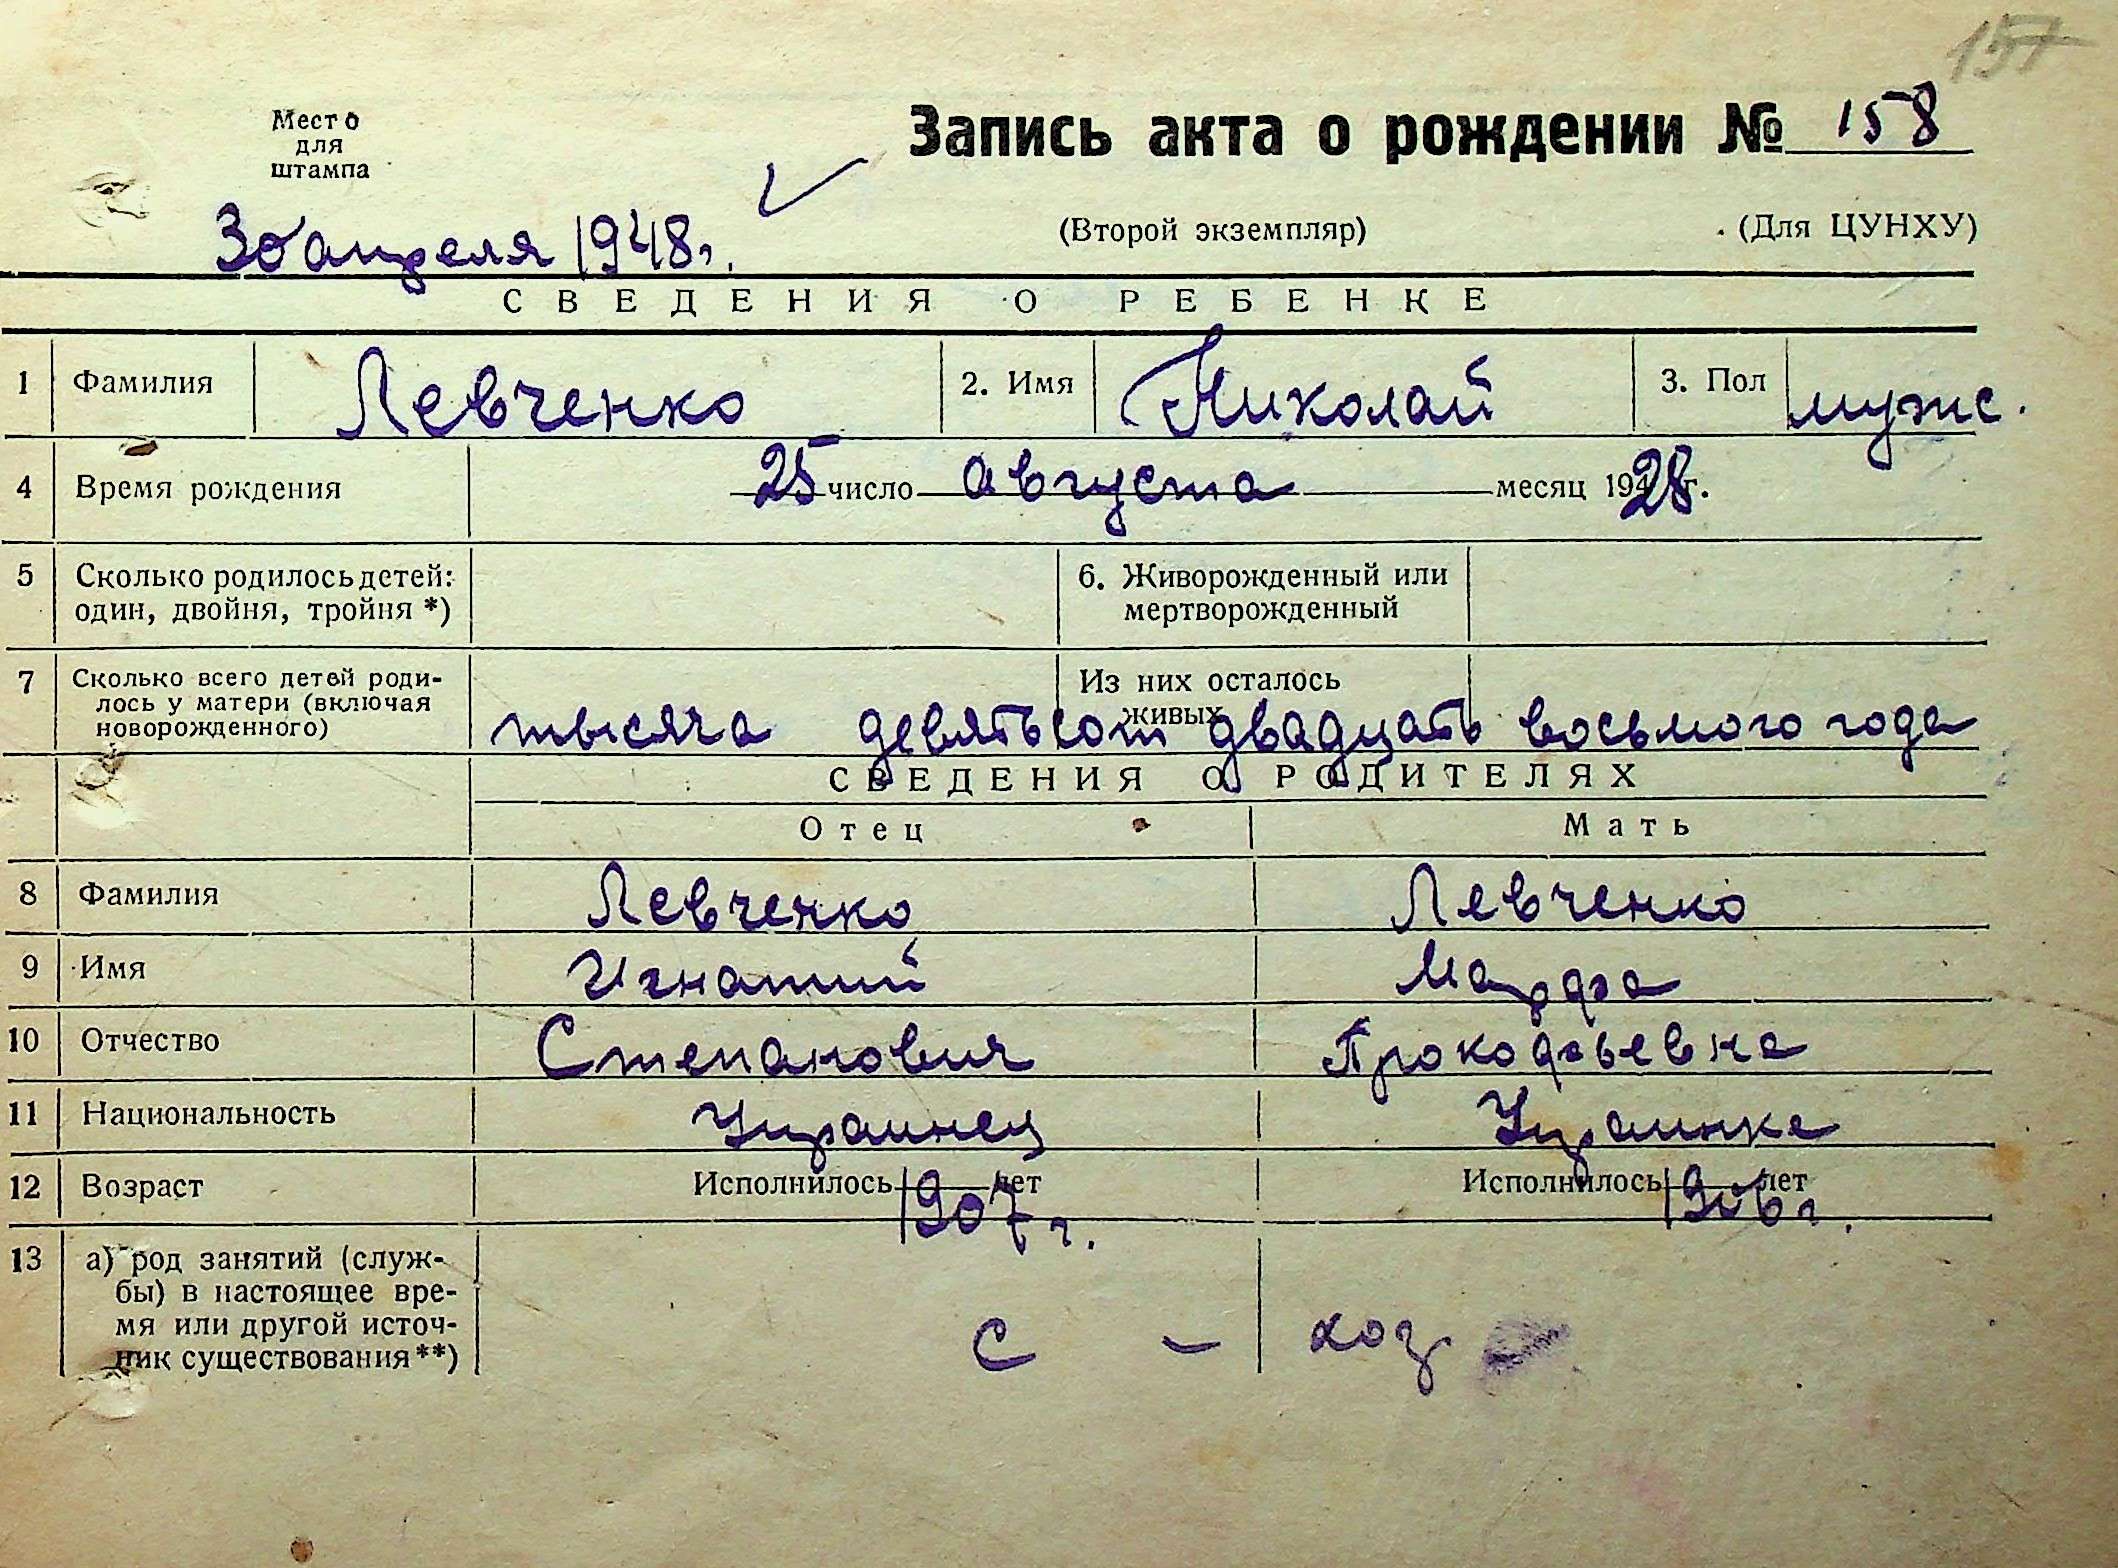 157
Место
для
штампа
Запись акта о рождении № 158
30 апреля 1948г.
(Второй экземпляр) (Для ЦУНХУ)
СВЕДЕНИЯ О РЕБЕНКЕ
1 Фамилия Левченко 2. Имя Николай 3. Пол мужс.
4 Время рождения 25 число августа месяц 1928 г.
5 Сколько родилось детей: один, двойня, тройня *) 6. Живорожденный или мертворожденный
7 Сколько всего детей роди-
лось у матери (включая
новорожденного)
Из них осталось
живых
тысяча девятьсот двадцать восьмого года
СВЕДЕНИЯ О РОДИТЕЛЯХ
Отец Мать
8 Фамилия Левченко Левченко
9 Имя Игнатий Марфа
10 Отчество Степанович Прокофьевна
11 Национальность Украинец Украинка
12 Возраст Исполнилось 1907 г. лет Исполнилось 1906 г. лет
13 а) род занятий (служ-
бы) в настоящее вре-
мя или другой источ-
ник существования **)
с - хоз